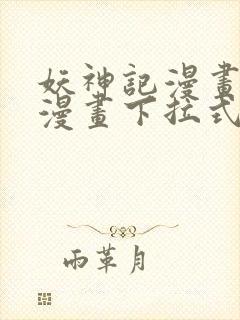 妖神記漫畫
漫畫下拉式
雨革月